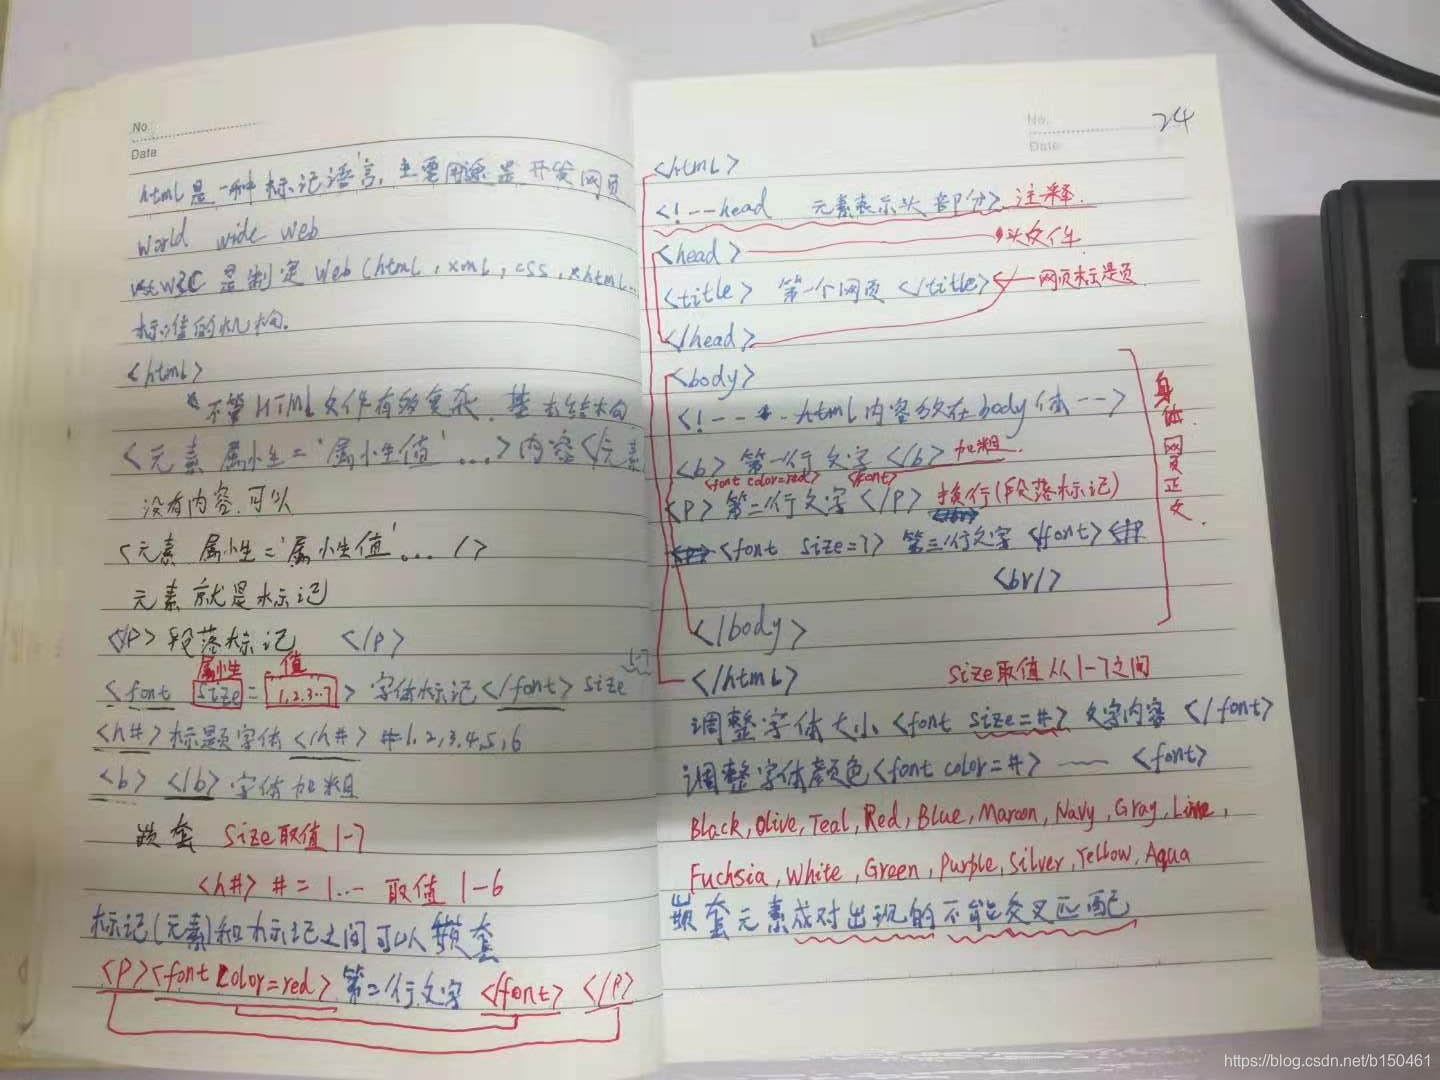 No.
Date
html是一种标记语言,主要用途是开发网页
World wide Web
W3C是制定Web(html,xml,css,xhtml...
标准的机构.
<html>
不管HTML文件有多复杂.基本结构
<元素 属性='属性值'...>内容</元素
没有内容.可以
<元素 属性='属性值'... />
元素就是标记
</P>段落标记 </P>
属性 值
<font size=1,2,3..7> 字体标记</font> size
1-7
<h#>标题字体</h#> #1,2,3,4,5,6
<b> </b>字体加粗
嵌套 size取值1-7
<h#> #=1... 取值 1-6
标记(元素)和标记之间可以嵌套
<P><font color=red>第二行文字 </font> </P>
No. 24
Date
<html>
<!--head 元素表示头部分> 注释.
<head> 头文件
<title> 第一个网页 </title> 网页标题页
</head>
<body>
<!-- html内容放在body体-->
<b>第一行文字</b> 加粗.
<font color=red> <font>
<P>第二行文字</P> 换行(段落标记)
<font size=7> 第三行文字 </font>
<br/>
身体.网页正文.
</body>
</html> size取值从1-7之间
调整字体大小<font size=#> 文字内容 </font>
调整字体颜色<font color=#> —— <font>
Black,Olive,Teal,Red,Blue,Maroon,Navy,Gray,Lime,
Fuchsia,White,Green,Purple,Silver,Yellow,Aqua
嵌套元素成对出现的不能交叉匹配
https://blog.csdn.net/b150461